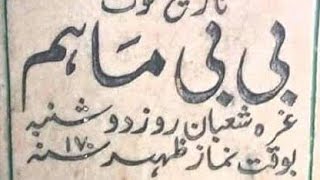 تاریخ فوت
بی بی ماہم
غرہ شعبان روز دو شنبہ
بوقت نماز ظہر سنہ ۱۷۰